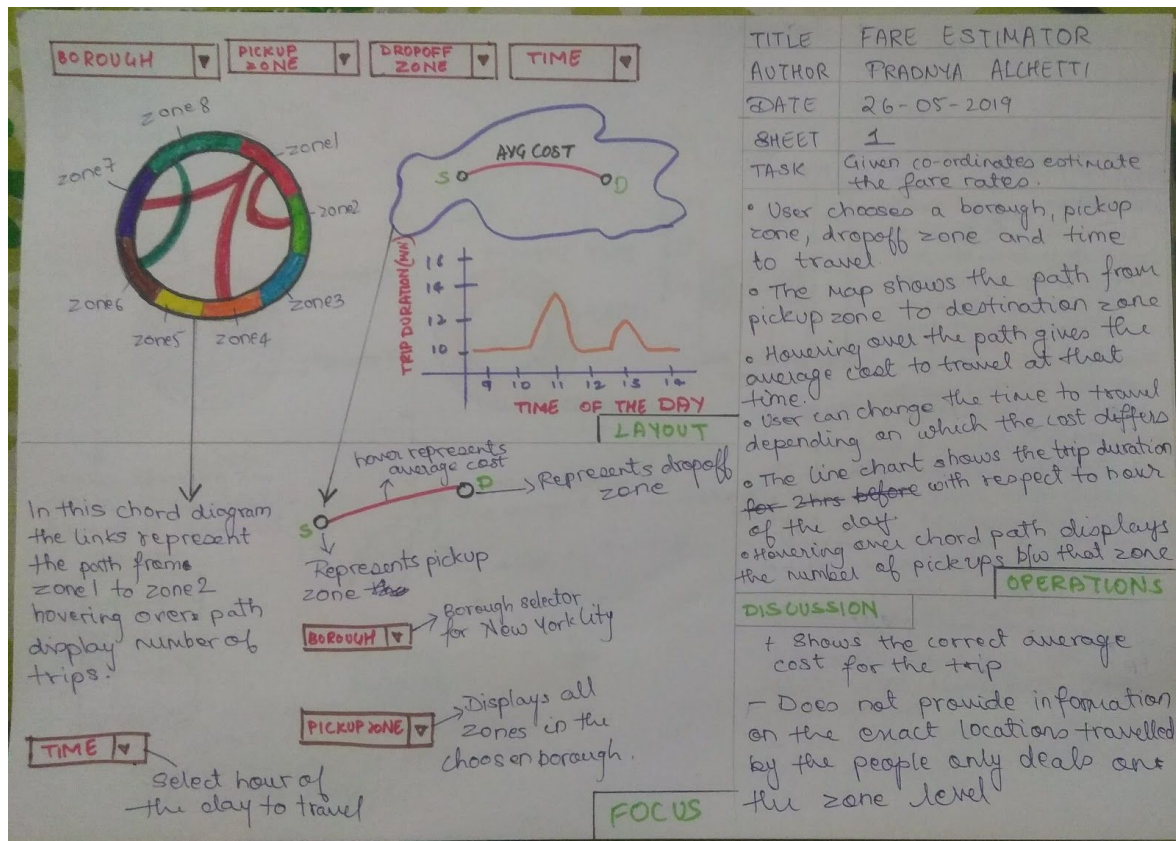 BOROUGH
PICKUP
ZONE
DROPOFF
ZONE
TIME
zone8
zone1
zone7
zone2
zone6
zone3
zone5
zone4
AVG COST
S
D
TRIP DURATION (MIN)
16
14
12
10
9 10 11 12 13 14
TIME OF THE DAY
LAYOUT
In this chord diagram
the links represent
the path from
zone1 to zone2
hovering over path
display number of
trips.
hover represents
average cost
D
Represents dropoff
zone
S
Represents pickup
zone
BOROUGH
Borough selector
for New York City
PICKUP ZONE
Displays all
zones in the
choosen borough.
TIME
select hour of
the day to travel
FOCUS
TITLE FARE ESTIMATOR
AUTHOR PRADNYA ALCHETTI
DATE 26-05-2019
SHEET 1
TASK Given co-ordinates estimate
the fare rates.
• User chooses a borough, pickup
zone, dropoff zone and time
to travel
• The map shows the path from
pickup zone to destination zone
• Hovering over the path gives the
average cost to travel at that
time.
• User can change the time to travel
depending on which the cost differs
• The line chart shows the trip duration
for 2hrs before with respect to hour
of the day.
• Hovering over chord path displays
the number of pickups b/w that zone
OPERATIONS
DISCUSSION
+ Shows the correct average
cost for the trip
- Does not provide information
on the exact locations travelled
by the people only deals on
the zone level